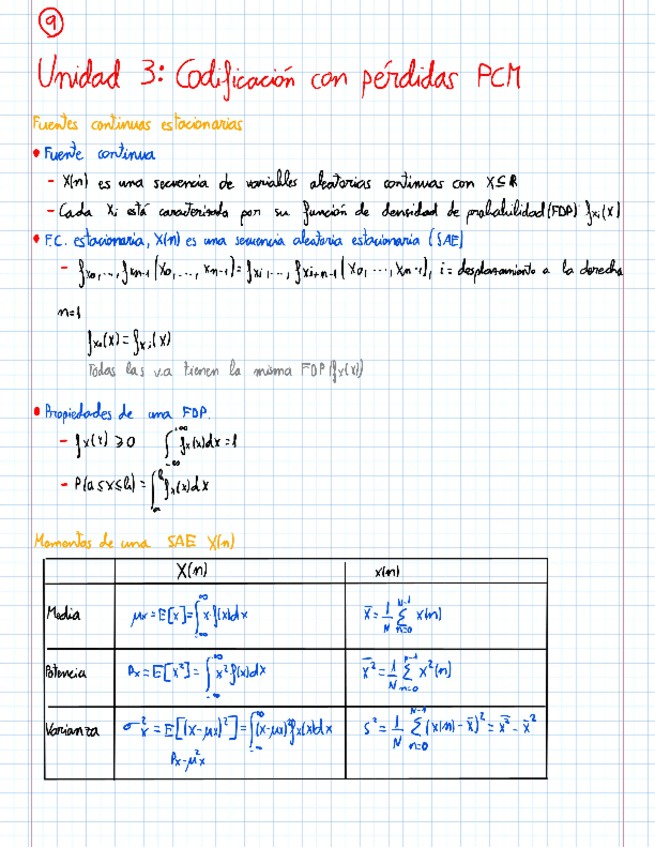 9
Unidad 3: Codificación con pérdidas PCM
Fuentes continuas estacionarias
• Fuente continua
- X(n) es una secuencia de variables aleatorias continuas con X⊆R
- Cada Xi está caracterizada por su función de densidad de probabilidad (FDP) fxi(x)
• F.C. estacionaria, X(n) es una secuencia aleatoria estacionaria (SAE)
- fx0,...,fxn-1(x0,...,xn-1)=fxi,...,fxi+n-1(x0,...,xn-1), i = desplazamiento a la derecha
n=1
fx0(x)=fxi(x)
Todas las v.a tienen la misma FDP(fx(x))
• Propiedades de una FDP.
- fx(x) ≥ 0 ∫_{-∞}^{+∞} fx(x)dx=1
- P(a≤x≤b)=∫_a^b fx(x)dx
Momentos de una SAE X(n)
X(n) x(n)
Media μx=E[x]=∫_{-∞}^{∞} x·f(x)dx x̄=1/N Σ_{n=0}^{N-1} x(n)
Potencia Px=E[x²]=∫_{-∞}^{∞} x²f(x)dx x̄²=1/N Σ_{n=0}^{N-1} x²(n)
Varianza σ²x=E[(x-μx)²]=∫_{-∞}^{∞}(x-μx)²fx(x)dx s²=1/N Σ_{n=0}^{N-1}(x(n)-x̄)²=x̄²-x̄²
Px-μ²x